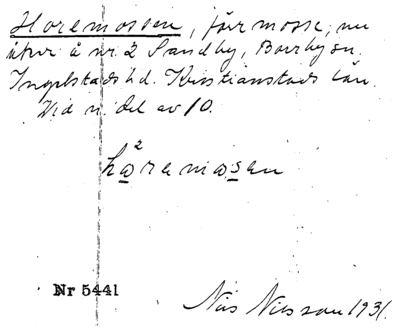 Horemossen, förr mosse, nu
åker å nr 2 Sandby, Borrby sn.
Ingelstads hd. Kristianstads län.
Vid n. del av 10.
hǫ²remǫsen
Nr 5441
Nils Nilsson 1931.